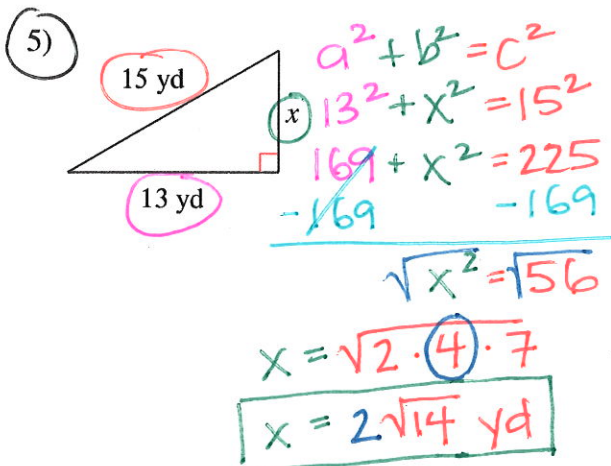 5)
15 yd
x
13 yd
a² + b² = c²
13² + x² = 15²
169 + x² = 225
-169 -169
√x² = √56
x = √2 · 4 · 7
x = 2√14 yd